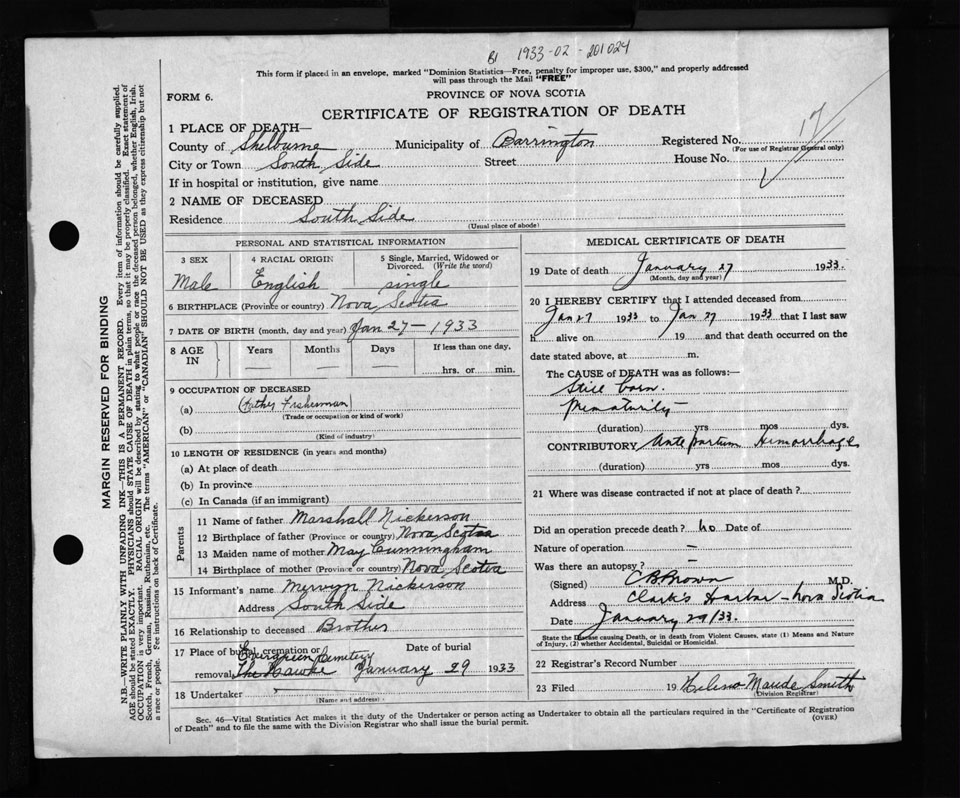 B1 1933-02-201024
This form if placed in an envelope, marked "Dominion Statistics—Free, penalty for improper use, $300," and properly addressed
will pass through the Mail "FREE"
PROVINCE OF NOVA SCOTIA
FORM 6.
CERTIFICATE OF REGISTRATION OF DEATH
17
1 PLACE OF DEATH—
County of Shelburne Municipality of Barrington Registered No.
(For use of Registrar General only)
City or Town South Side Street House No.
If in hospital or institution, give name
2 NAME OF DECEASED
Residence South Side
(Usual place of abode)
PERSONAL AND STATISTICAL INFORMATION
3 SEX 4 RACIAL ORIGIN 5 Single, Married, Widowed or
Divorced. (Write the word)
Male English single
6 BIRTHPLACE (Province or country) Nova Scotia
7 DATE OF BIRTH (month, day and year) Jan 27 — 1933
8 AGE IN Years Months Days If less than one day,
— — — hrs. or min.
9 OCCUPATION OF DECEASED
(a) (Father Fisherman)
(Trade or occupation or kind of work)
(b)
(Kind of industry)
10 LENGTH OF RESIDENCE (in years and months)
(a) At place of death
(b) In province
(c) In Canada (if an immigrant)
Parents
11 Name of father Marshall Nickerson
12 Birthplace of father (Province or country) Nova Scotia
13 Maiden name of mother May Cunningham
14 Birthplace of mother (Province or country) Nova Scotia
15 Informant's name Merwyn Nickerson
Address South Side
16 Relationship to deceased Brother
17 Place of burial, cremation or Date of burial
Evergreen Cemetery
removal The Hawke January 29 1933
18 Undertaker
(Name and address)
MEDICAL CERTIFICATE OF DEATH
19 Date of death January 27 1933.
(Month, day and year)
20 I HEREBY CERTIFY that I attended deceased from
Jan 27 1933 to Jan 27 1933 that I last saw
h alive on 19 and that death occurred on the
date stated above, at m.
The CAUSE of DEATH was as follows:—
Still born.
Prematurity
(duration) yrs mos dys.
CONTRIBUTORY Ante partum Hemorrhage
(duration) yrs mos dys.
21 Where was disease contracted if not at place of death?
Did an operation precede death? no Date of
Nature of operation —
Was there an autopsy?
(Signed) C.B. Brown M.D.
Address Clark's Harbor — Nova Scotia
Date January 29/33.
State the Disease causing Death, or in death from Violent Causes, state (1) Means and Nature
of Injury, (2) whether Accidental, Suicidal or Homicidal.
22 Registrar's Record Number
23 Filed 19 Maude Smith
Division Registrar
Sec. 46—Vital Statistics Act makes it the duty of the Undertaker or person acting as Undertaker to obtain all the particulars required in the "Certificate of Registration
of Death" and to file the same with the Division Registrar who shall issue the burial permit. (OVER)
MARGIN RESERVED FOR BINDING
N.B.—WRITE PLAINLY WITH UNFADING INK—THIS IS A PERMANENT RECORD. Every item of information should be carefully supplied.
AGE should be stated EXACTLY. PHYSICIANS should STATE CAUSE OF DEATH in plain terms, so that it may be properly classified. Exact statement of
OCCUPATION is very important. RACIAL ORIGIN will be described by stating to what people or race the deceased person belonged, whether English, Irish,
Scotch, French, German, Russian, Ruthenian, etc. The terms "AMERICAN" or "CANADIAN" SHOULD NOT BE USED as they express citizenship but not
a race or people. Fee instructions on back of Certificate.